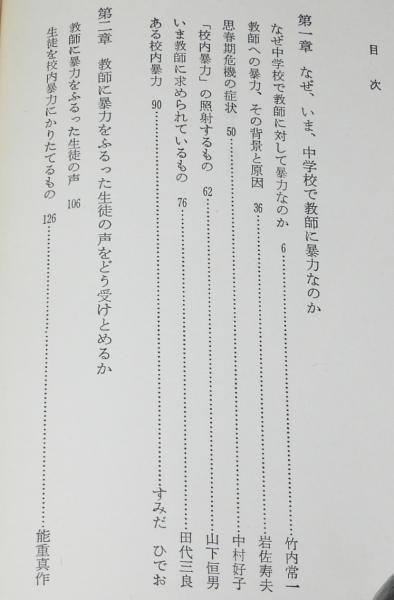 目次
第一章 なぜ、いま、中学校で教師に暴力なのか
なぜ中学校で教師に対して暴力なのか 6 竹内常一
教師への暴力、その背景と原因 36 岩佐寿夫
思春期危機の症状 50 中村好子
「校内暴力」の照射するもの 62 山下恒男
いま教師に求められているもの 76 田代三良
ある校内暴力 90 すみだ ひでお
第二章 教師に暴力をふるった生徒の声をどう受けとめるか
教師に暴力をふるった生徒の声 106
生徒を校内暴力にかりたてるもの 126 能重真作